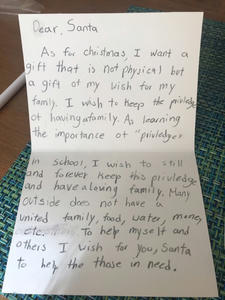 Dear, Santa
As for christmas, I want a
gift that is not physical but
a gift of my wish for my
family. I wish to keep the priviledge
of having a family. As learning
the importance of "priviledge"
in school, I wish to still
and forever keep this priviledge
and have a loving family. Many
outside does not have a
united family, food, water, money,
etc. To help myself and
others I wish for you, Santa
to help the those in need.